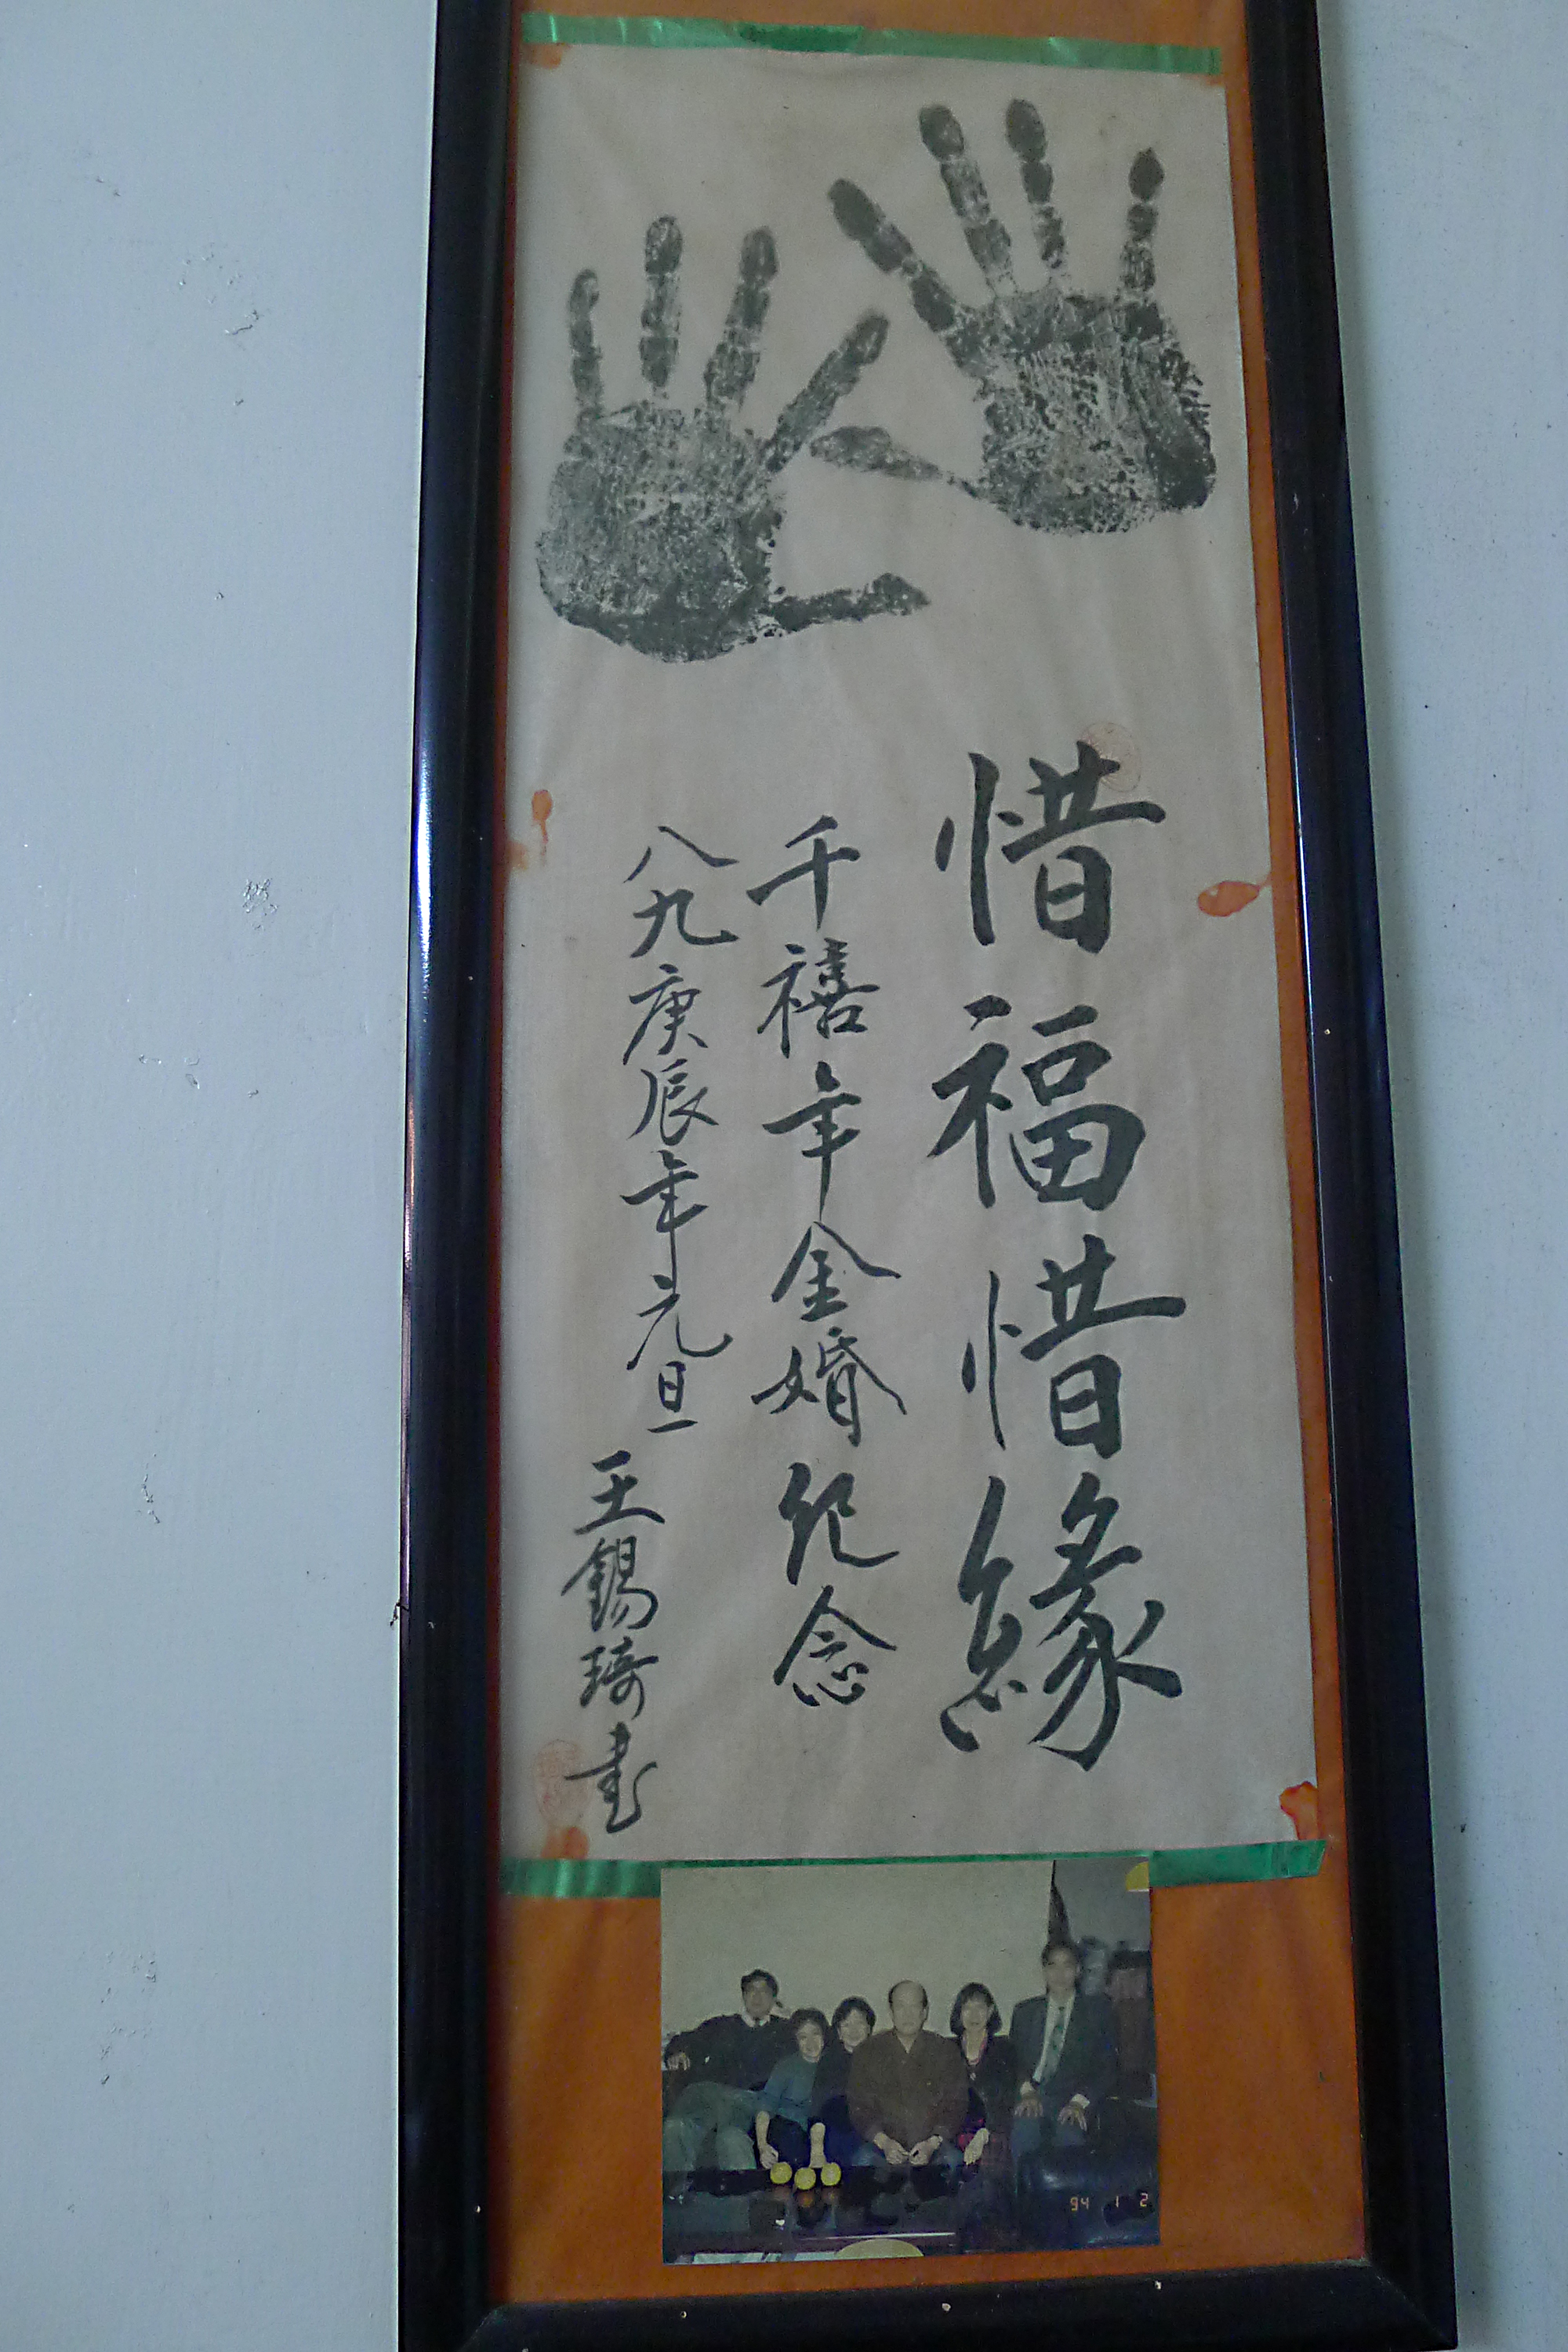 惜福惜緣
千禧年金婚紀念
八九庚辰年元旦
王錫琦書
94 1 2